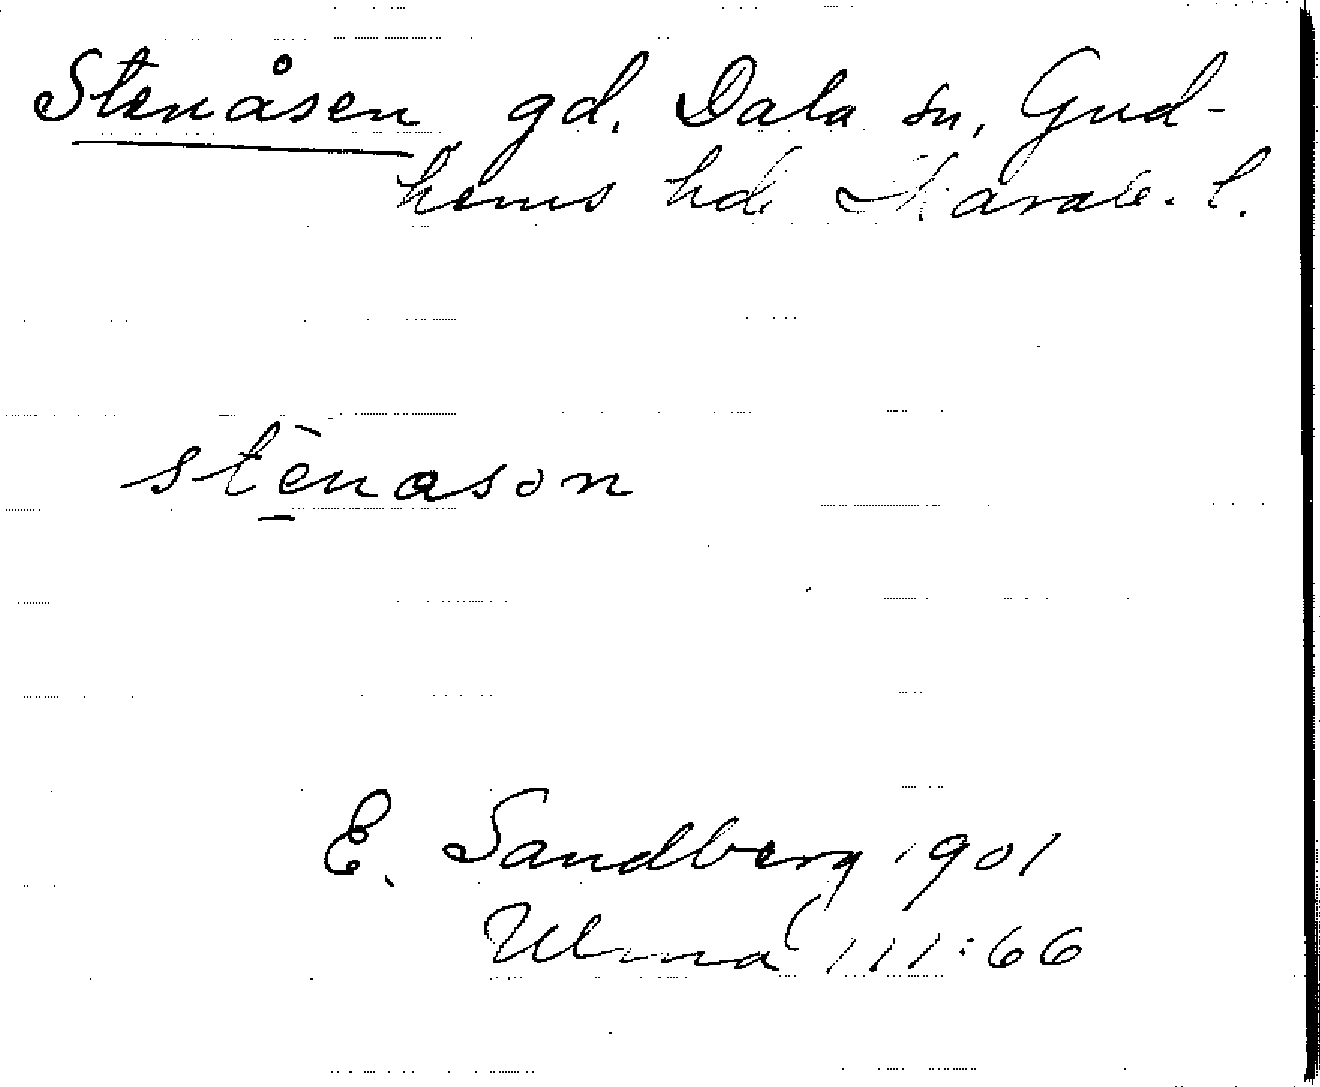 Stenåsen gd. Dala sn, Gud-
hems hd Skarab. l.
stèn̲ason
E. Sandberg 1901
Ulma 111:66